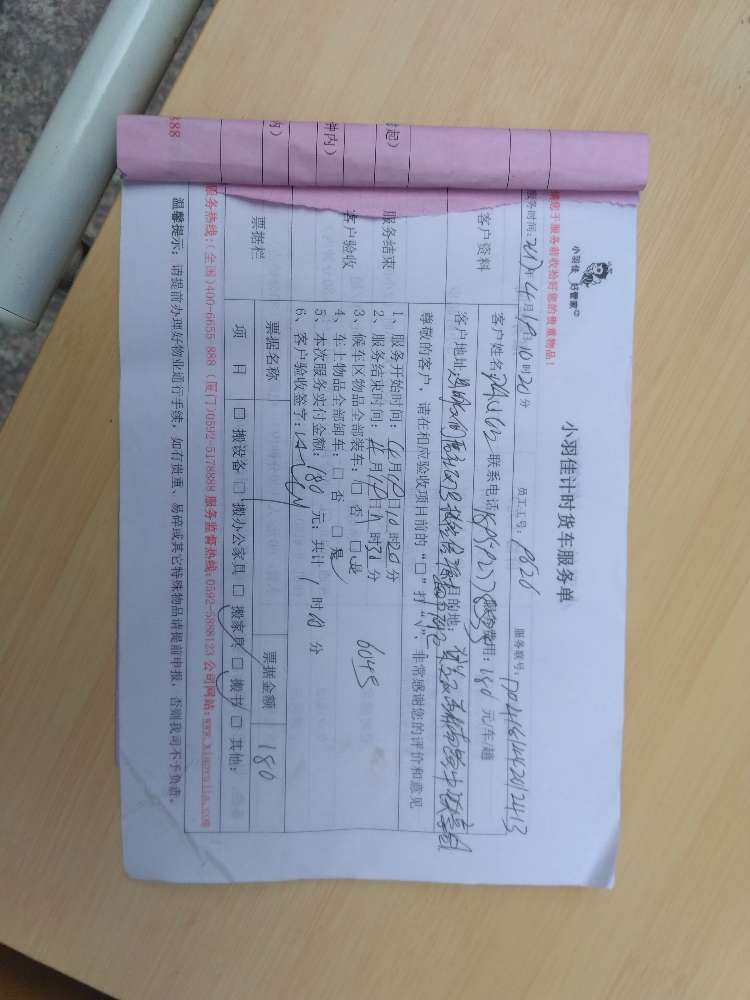 小羽佳 好管家
小羽佳计时货车服务单
您于服务前收拾好您的贵重物品！
服务时间：2017年4月19日10时20分 员工工号：P626 服务账号：
客户资料
客户姓名 联系电话 服务费用：180元/车/趟
客户地址 目的地：
尊敬的客户，请在相应验收项目前的“□”打“√”，非常感谢您的评价和意见
时起）
服务结束
钟内）
客户验收
1、服务开始时间：4月19日10时20分
2、服务结束时间：4月19日11时31分
3、候车区物品全部装车：□ 否 □ 是
4、车上物品全部卸车：□ 否 □ 是
5、本次服务实付金额：180元；共计1时10分
6、客户验收签字：
6045
内）
票据栏
票据名称 票据金额 180
项 目 □ 搬设备 □ 搬办公家具 □ 搬家具 □ 搬书 □ 其他：
888
服务热线：(全国)400-6655 888 (厦门)0592-5178888 服务监督热线：0592-5888123 公司网站：www.xiaoyujia.com
温馨提示：请提前办理好物业通行手续，如有贵重、易碎或其它特殊物品请提前申报，否则我司不予负责。